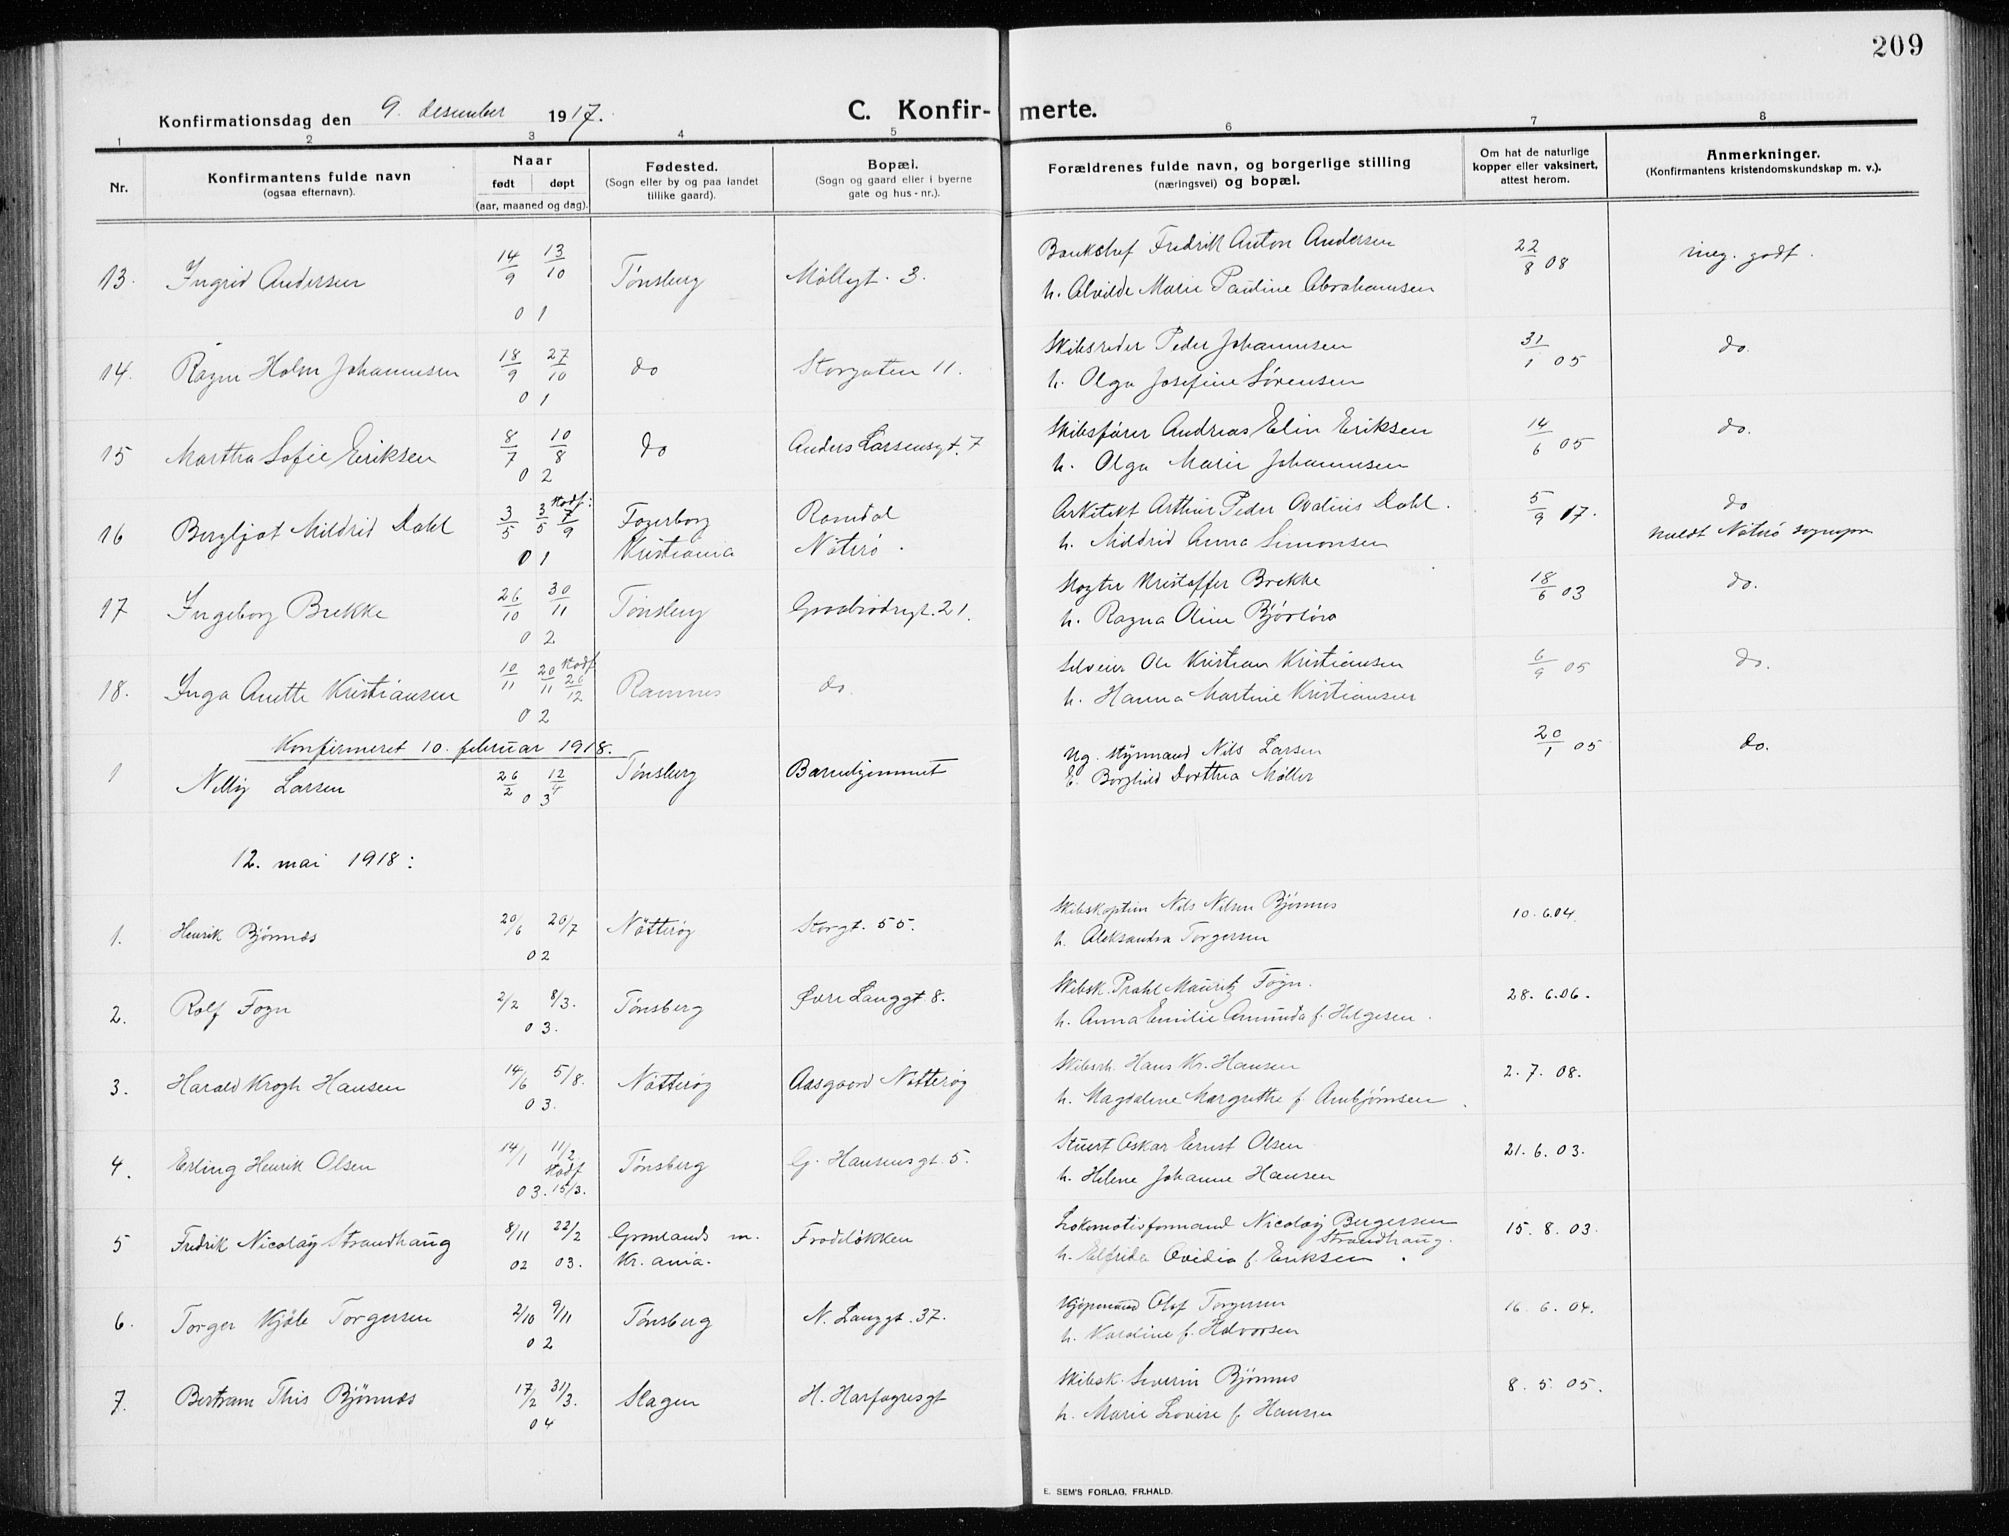 209
Konfirmationsdag den 9. desember 1917. C. Konfir- merte.
1 2 3 4 5 6 7 8
Nr. Konfirmantens fulde navn (ogsaa efternavn). Naar født døpt (aar, maaned og dag). Fødested. (Sogn eller by og paa landet tillike gaard). Bopæl. (Sogn og gaard eller i byerne gate og hus-nr.). Forældrenes fulde navn, og borgerlige stilling (næringsvei) og bopæl. Om hat de naturlige kopper eller vaksinert, attest herom. Anmerkninger. (Konfirmantens kristendomskundskap m. v.).
13. Ingrid Andersen 14/9 13/10 Tønsberg Møllegt. 3. Bankchef Fredrik Anton Andersen 22/8 08 meg. godt.
0 1 h. Alvilde Marie Pauline Abrahamsen
14. Ragna Holm Johannesen 18/9 27/10 do Storgaten 11. Skibsreder Peder Johannesen 31/1 05 do.
0 1 h. Olga Josefine Sørensen
15 Martha Sofie Eriksen 8/7 10/8 do Anders Larsensgt. 7 Skibsfører Andreas Elin Eriksen 14/6 05 do.
0 2 h. Olga Marie Johannesen
16 Bergljot Mildrid Dahl 3/5 3/5 stadf: 7/9 Fagerborg Ramdal Arkitekt Arthur Peder Ovalius Dahl. 5/9 17. do
0 1 Kristiania Nøterø. h. Mildrid Anna Simonsen meldt Nøterø sognepr
17 Ingeborg Brekke 26/10 30/11 Tønsberg Graabrødregt. 21. Kristoffer Brekke 18/6 03 do.
0 2 h. Ragna Oline
18. Inga Anette Kristiansen 10/11 20/11 stadf 26/12 Ramnes do. Ole Kristian Kristiansen 6/9 05 do.
0 2 h. Hanna Martine Kristiansen
Konfirmeret 10. februar 1918.
1 Nelly Larsen 26/2 12/4 Tønsberg Barnehjemmet Ug. styrmand Nils Larsen 20/1 05 do.
0 3 E. Borghild Dorthea Møller
12. mai 1918:
1. Henrik Bjønnes 20/6 20/7 Nøtterøy Storgt. 55. Skibskaptein Nils Nilsen Bjønnes 10.6.04.
0 2 h. Aleksandra Torgersen
2. Rolf Fogn 2/2 8/3. Tønsberg Øvre Langgt. 8. Skibsk. Prahl Mauritz Fogn. 28.6.06.
0 3. h. Anna Emilie Amunda f. Helgesen.
3. Harald Krogh Hansen 14/6 5/8. Nøtterøy Aasgaard Nøtterøy Hans Kr. Hansen 2.7.08.
0 3. h. Magdalene Margrethe f. Arnbjørnsen.
4. Erling Henrik Olsen 14/1 11/2 Tønsberg G. Hansensgt. 5. Stuert Oskar Ernst Olsen 21.6.03.
03. stadf 15/3. h. Helene Johanne Hansen
5 Fredrik Nicolay Strandhaug 8/11 22/2 Grønlands m. Frodeløkken Lokomotivformand Nicolay Bergersen Strandhaug. 15.8.03.
02 03. Kr.ania. h. Elfrida Ovidia f. Eriksen.
6. Torger Kjøle Torgersen 2/10 9/11 Tønsberg N. Langgt. 37. Kjøpmand Olaf Torgersen 16.6.04.
0 2 h. Karoline f. Halvorsen
7. Bertram This Bjønnes 17/2 31/3. Slagen H. Harfagresgt Skibsk. Severin Bjønnes 8.5.05.
0 4 h. Marie Lovise f. Hansen
E. SEM'S FORLAG, FR.HALD.